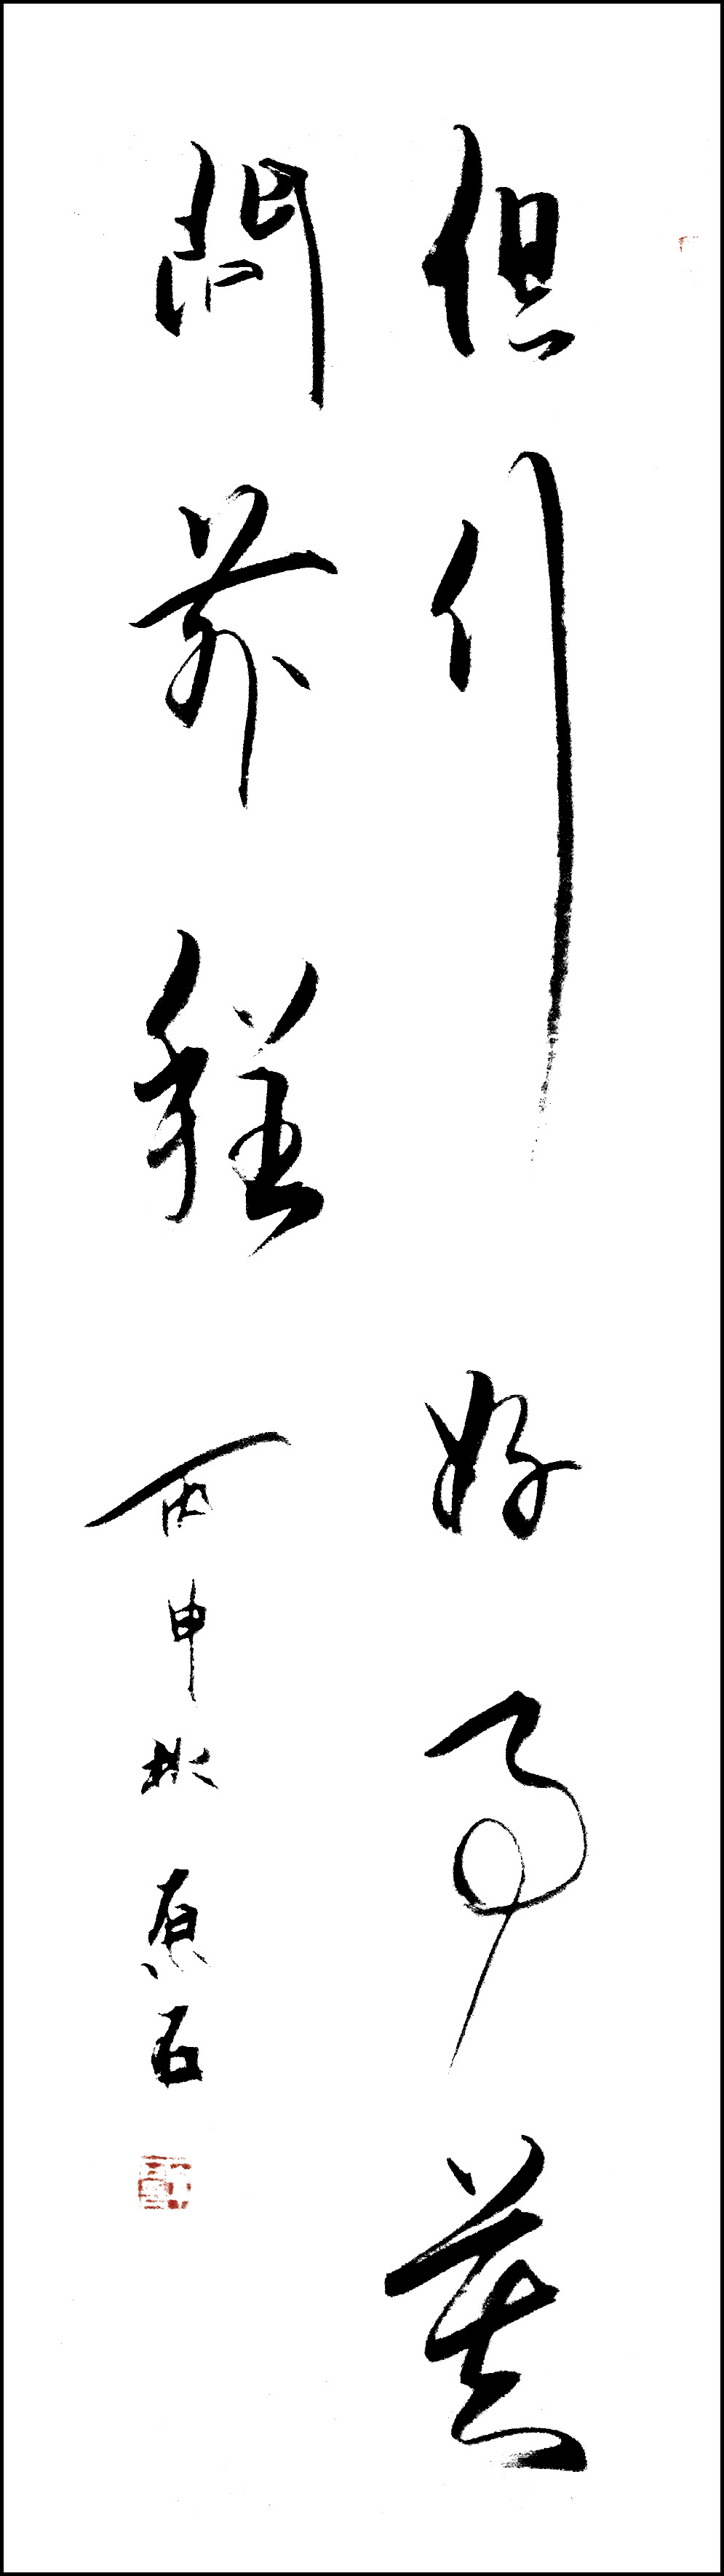 但行好事莫
問前程 丙申秋 原石